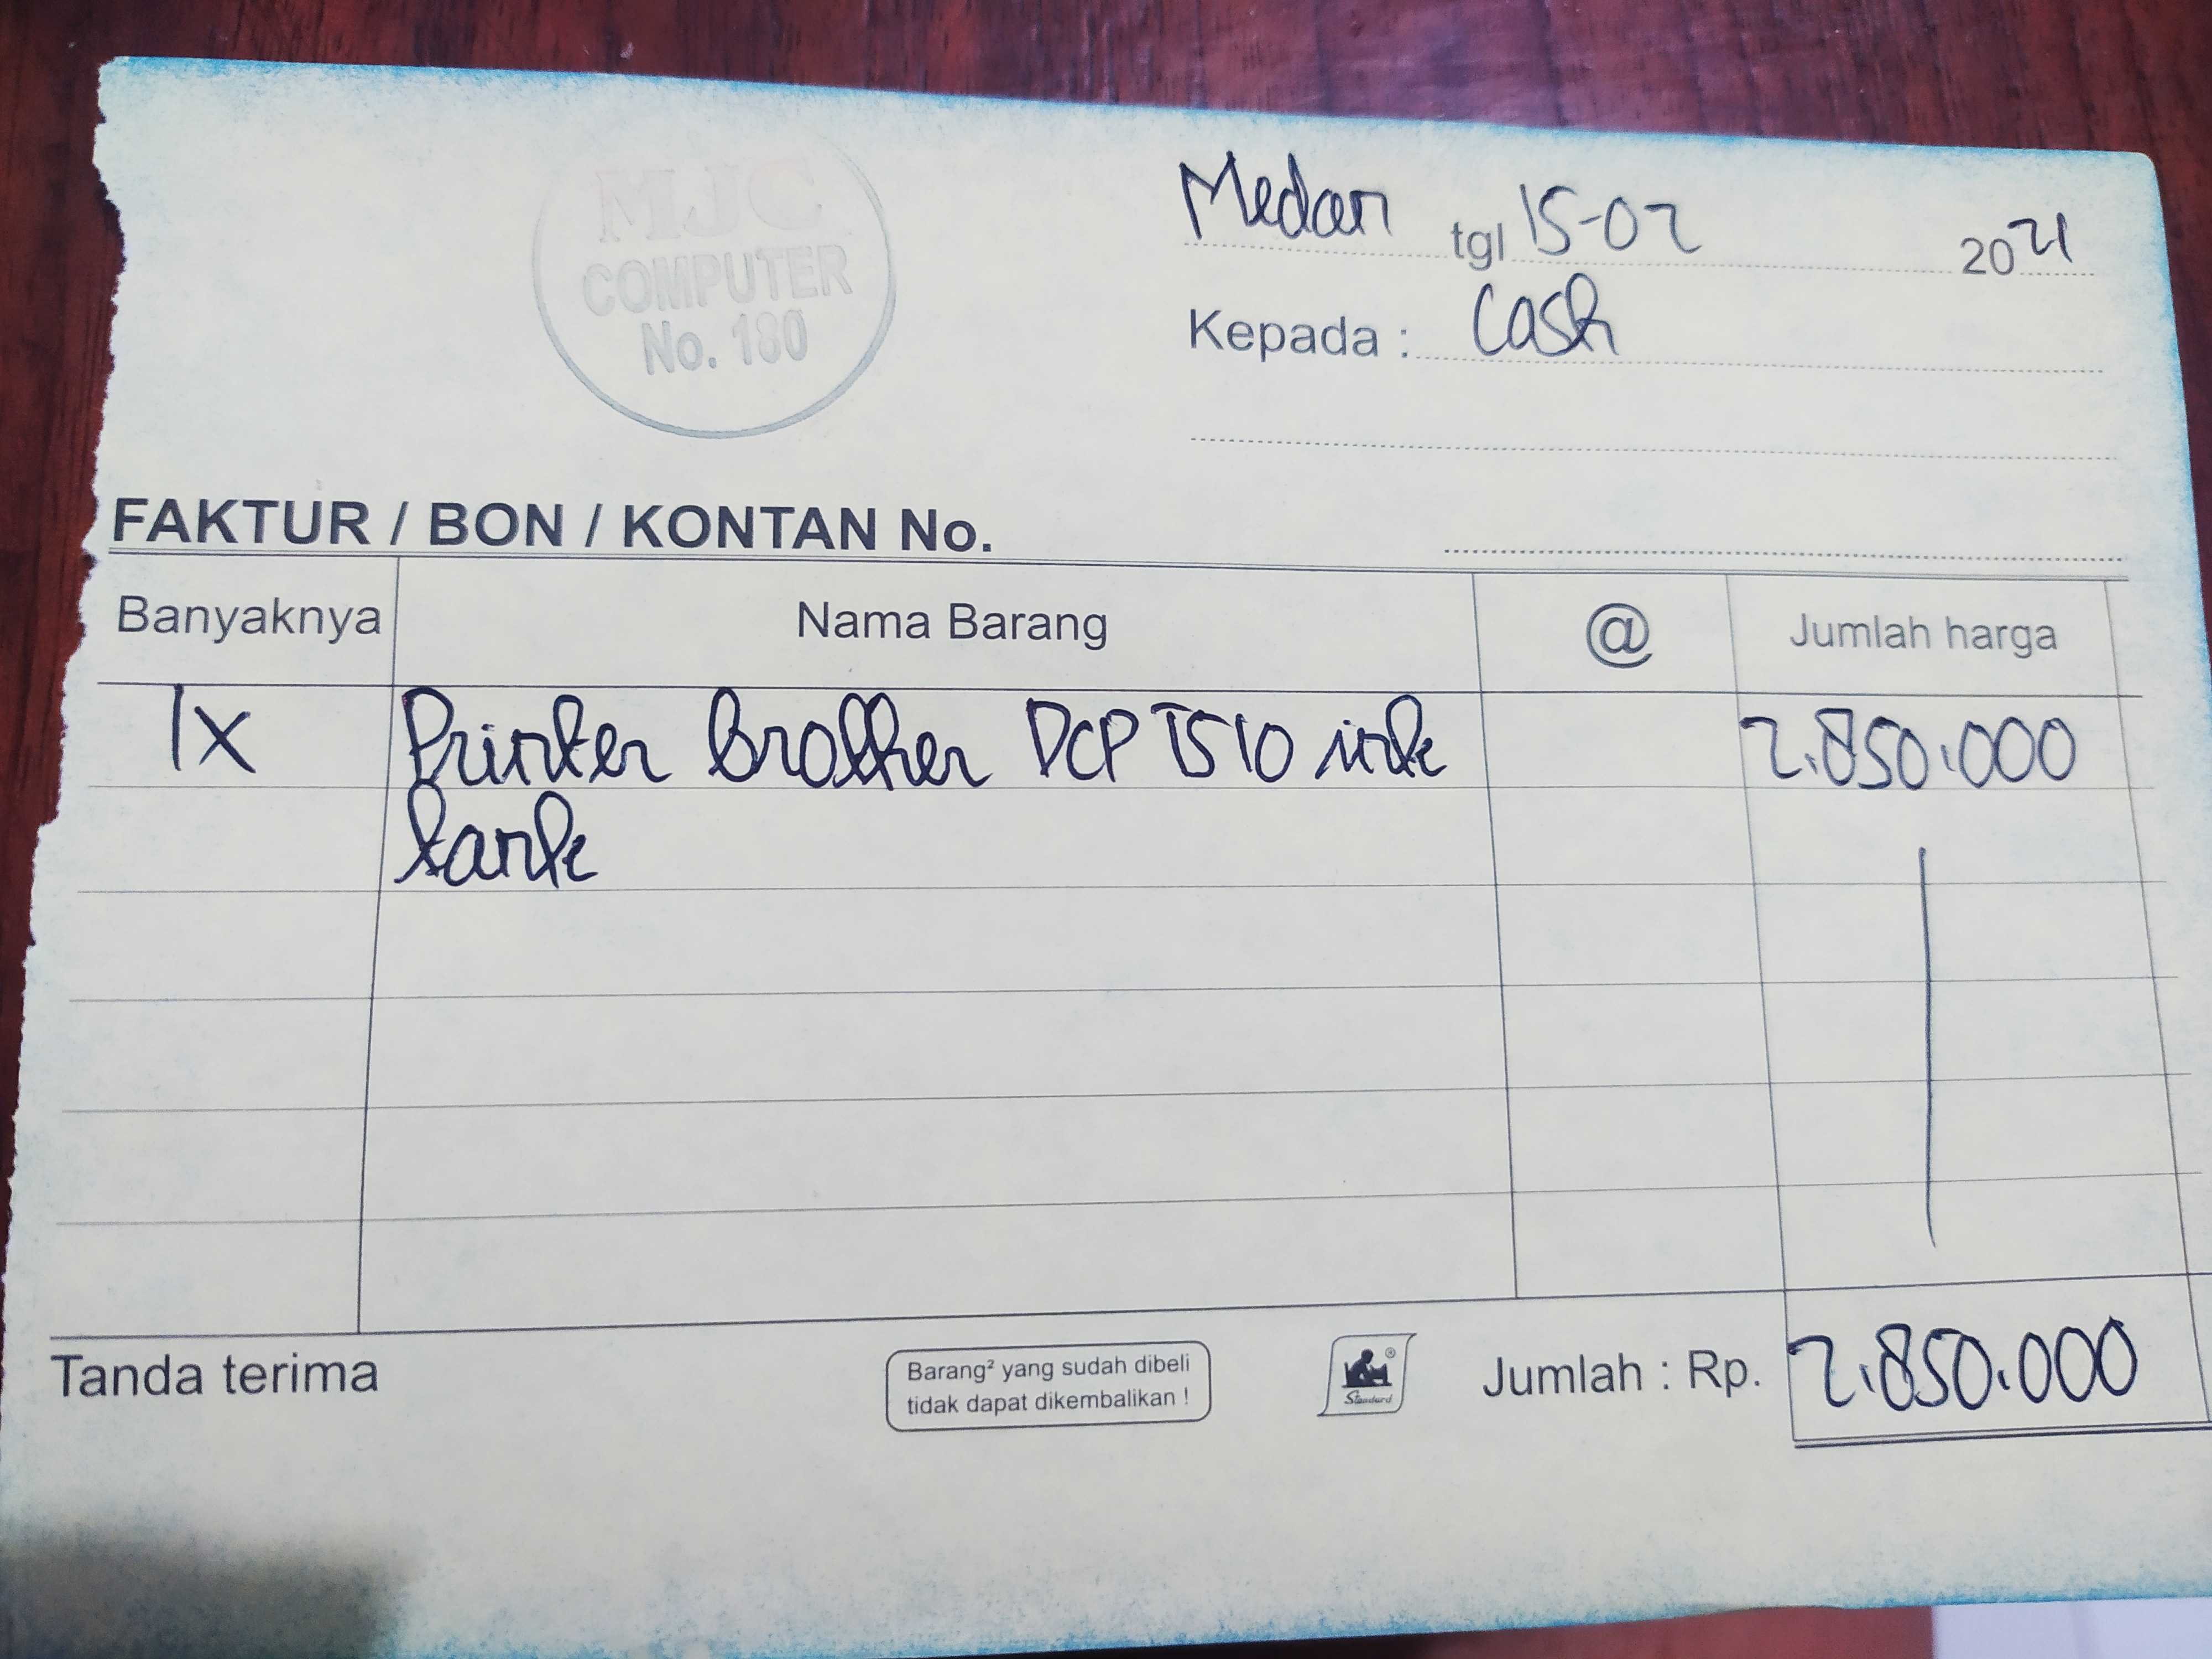 MJC
COMPUTER
No. 180
Medan tgl 15-02 2021
Kepada : Cash
FAKTUR / BON / KONTAN No.
Banyaknya Nama Barang @ Jumlah harga
1x Printer Brother DCP T510 ink 2.850.000
tank
Tanda terima
Barang² yang sudah dibeli
tidak dapat dikembalikan !
®
Standard
Jumlah : Rp. 2.850.000